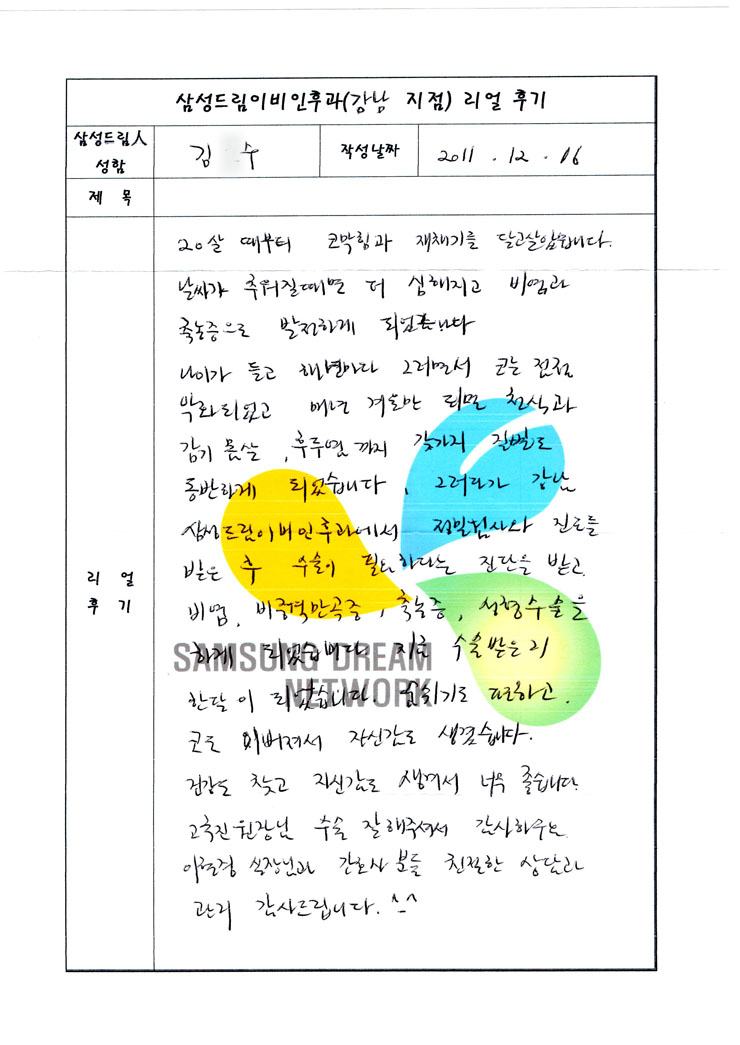 삼성드림이비인후과(강남 지점) 리얼 후기
삼성드림人 성함
김 수
작성날짜
2011 . 12 . 16
제 목
리 얼 후 기
20살 때부터 코막힘과 재채기를 달고살았습니다.
날씨가 추워질때면 더 심해지고 비염과
축농증으로 발전하게 되었습니다
나이가 들고 해변마다 그러면서 코는 점점
악화되었고 매년 겨울만 되면 천식과
감기 몸살 , 후두염까지 갖가지 질병도
동반하게 되었습니다 , 그러다가 강남
삼성드림이비인후과에서 정밀검사와 진료를
받은 후 수술이 필요하다는 진단을 받고
비염, 비중격만곡증, 축농증, 성형수술을
하게 되었습니다. 지금 수술받은지
한달이 되었습니다. 숨쉬기도 편하고.
코도 이뻐져서 자신감도 생겼습니다.
건강도 찾고 자신감도 생겨서 너무 좋습니다.
원장님 수술 잘해주셔서 감사하구요
실장님과 간호사 분들 친절한 상담과
관리 감사드립니다. ^-^
SAMSUNG DREAM
NETWORK